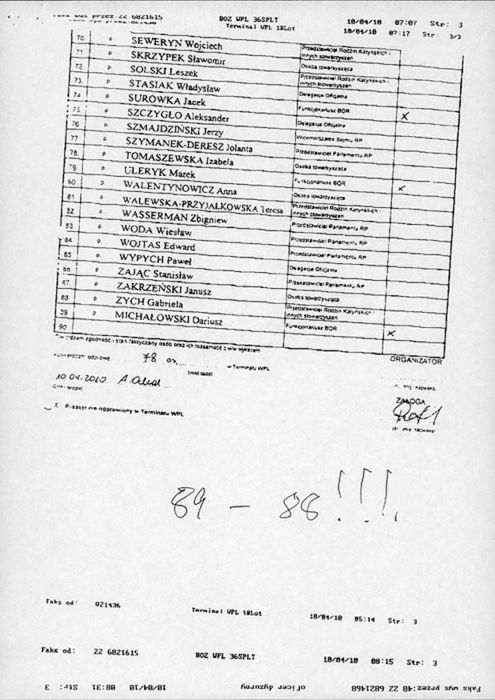 faks wys przez:22 6821615 BOZ WPL 36SPLT 10/04/10 07:07 Str: 3
Terminal WPL 1@Lot 10/04/10 07:17 Str: 3/3
70. p SEWERYN Wojciech Przedstawiciel Rodzin Katyńskich i innych stowarzyszeń
71 p SKRZYPEK Sławomir Osoba towarzysząca
72. p SOLSKI Leszek Przedstawiciel Rodzin Katyńskich i innych stowarzyszeń
73. p STASIAK Władysław Delegacja Oficjalna
74 p SURÓWKA Jacek Funkcjonariusz BOR x
75. p SZCZYGŁO Aleksander Delegacja Oficjalna
76. p SZMAJDZIŃSKI Jerzy Wicemarszałek Sejmu RP
77 p SZYMANEK-DERESZ Jolanta Przedstawiciel Parlamentu RP
78. p TOMASZEWSKA Izabela Osoba towarzysząca
79. p ULERYK Marek Funkcjonariusz BOR x
80 p WALENTYNOWICZ Anna Osoba towarzysząca
81 p WALEWSKA-PRZYJAŁKOWSKA Teresa Przedstawiciel Rodzin Katyńskich i innych stowarzyszeń
82 p WASSERMAN Zbigniew Przedstawiciel Parlamentu RP
83 p WODA Wiesław Przedstawiciel Parlamentu RP
84 p WOJTAS Edward Przedstawiciel Parlamentu RP
85 p WYPYCH Paweł Delegacja Oficjalna
86 p ZAJĄC Stanisław Przedstawiciel Parlamentu RP
87. p ZAKRZEŃSKI Janusz Osoba towarzysząca
88 p ZYCH Gabriela Przedstawiciel Rodzin Katyńskich i innych stowarzyszeń
89 p MICHAŁOWSKI Dariusz Funkcjonariusz BOR x
90
zgodność i stan faktyczny osób oraz ich tożsamość z w/w wykazem
78 w Terminalu WPL ORGANIZATOR
10.04.2010
ZAŁOGA
w Terminalu WPL
89 – 88 !!!
Faks od: 021436 Terminal WPL 1@Lot 10/04/10 05:14 Str: 3
Faks od: 22 6821615 BOZ WPL 36SPLT 10/04/10 08:15 Str: 3
faks wys przez:48 22 6821468 oficer dyżurny 10/04/10 08:31 Str: 3